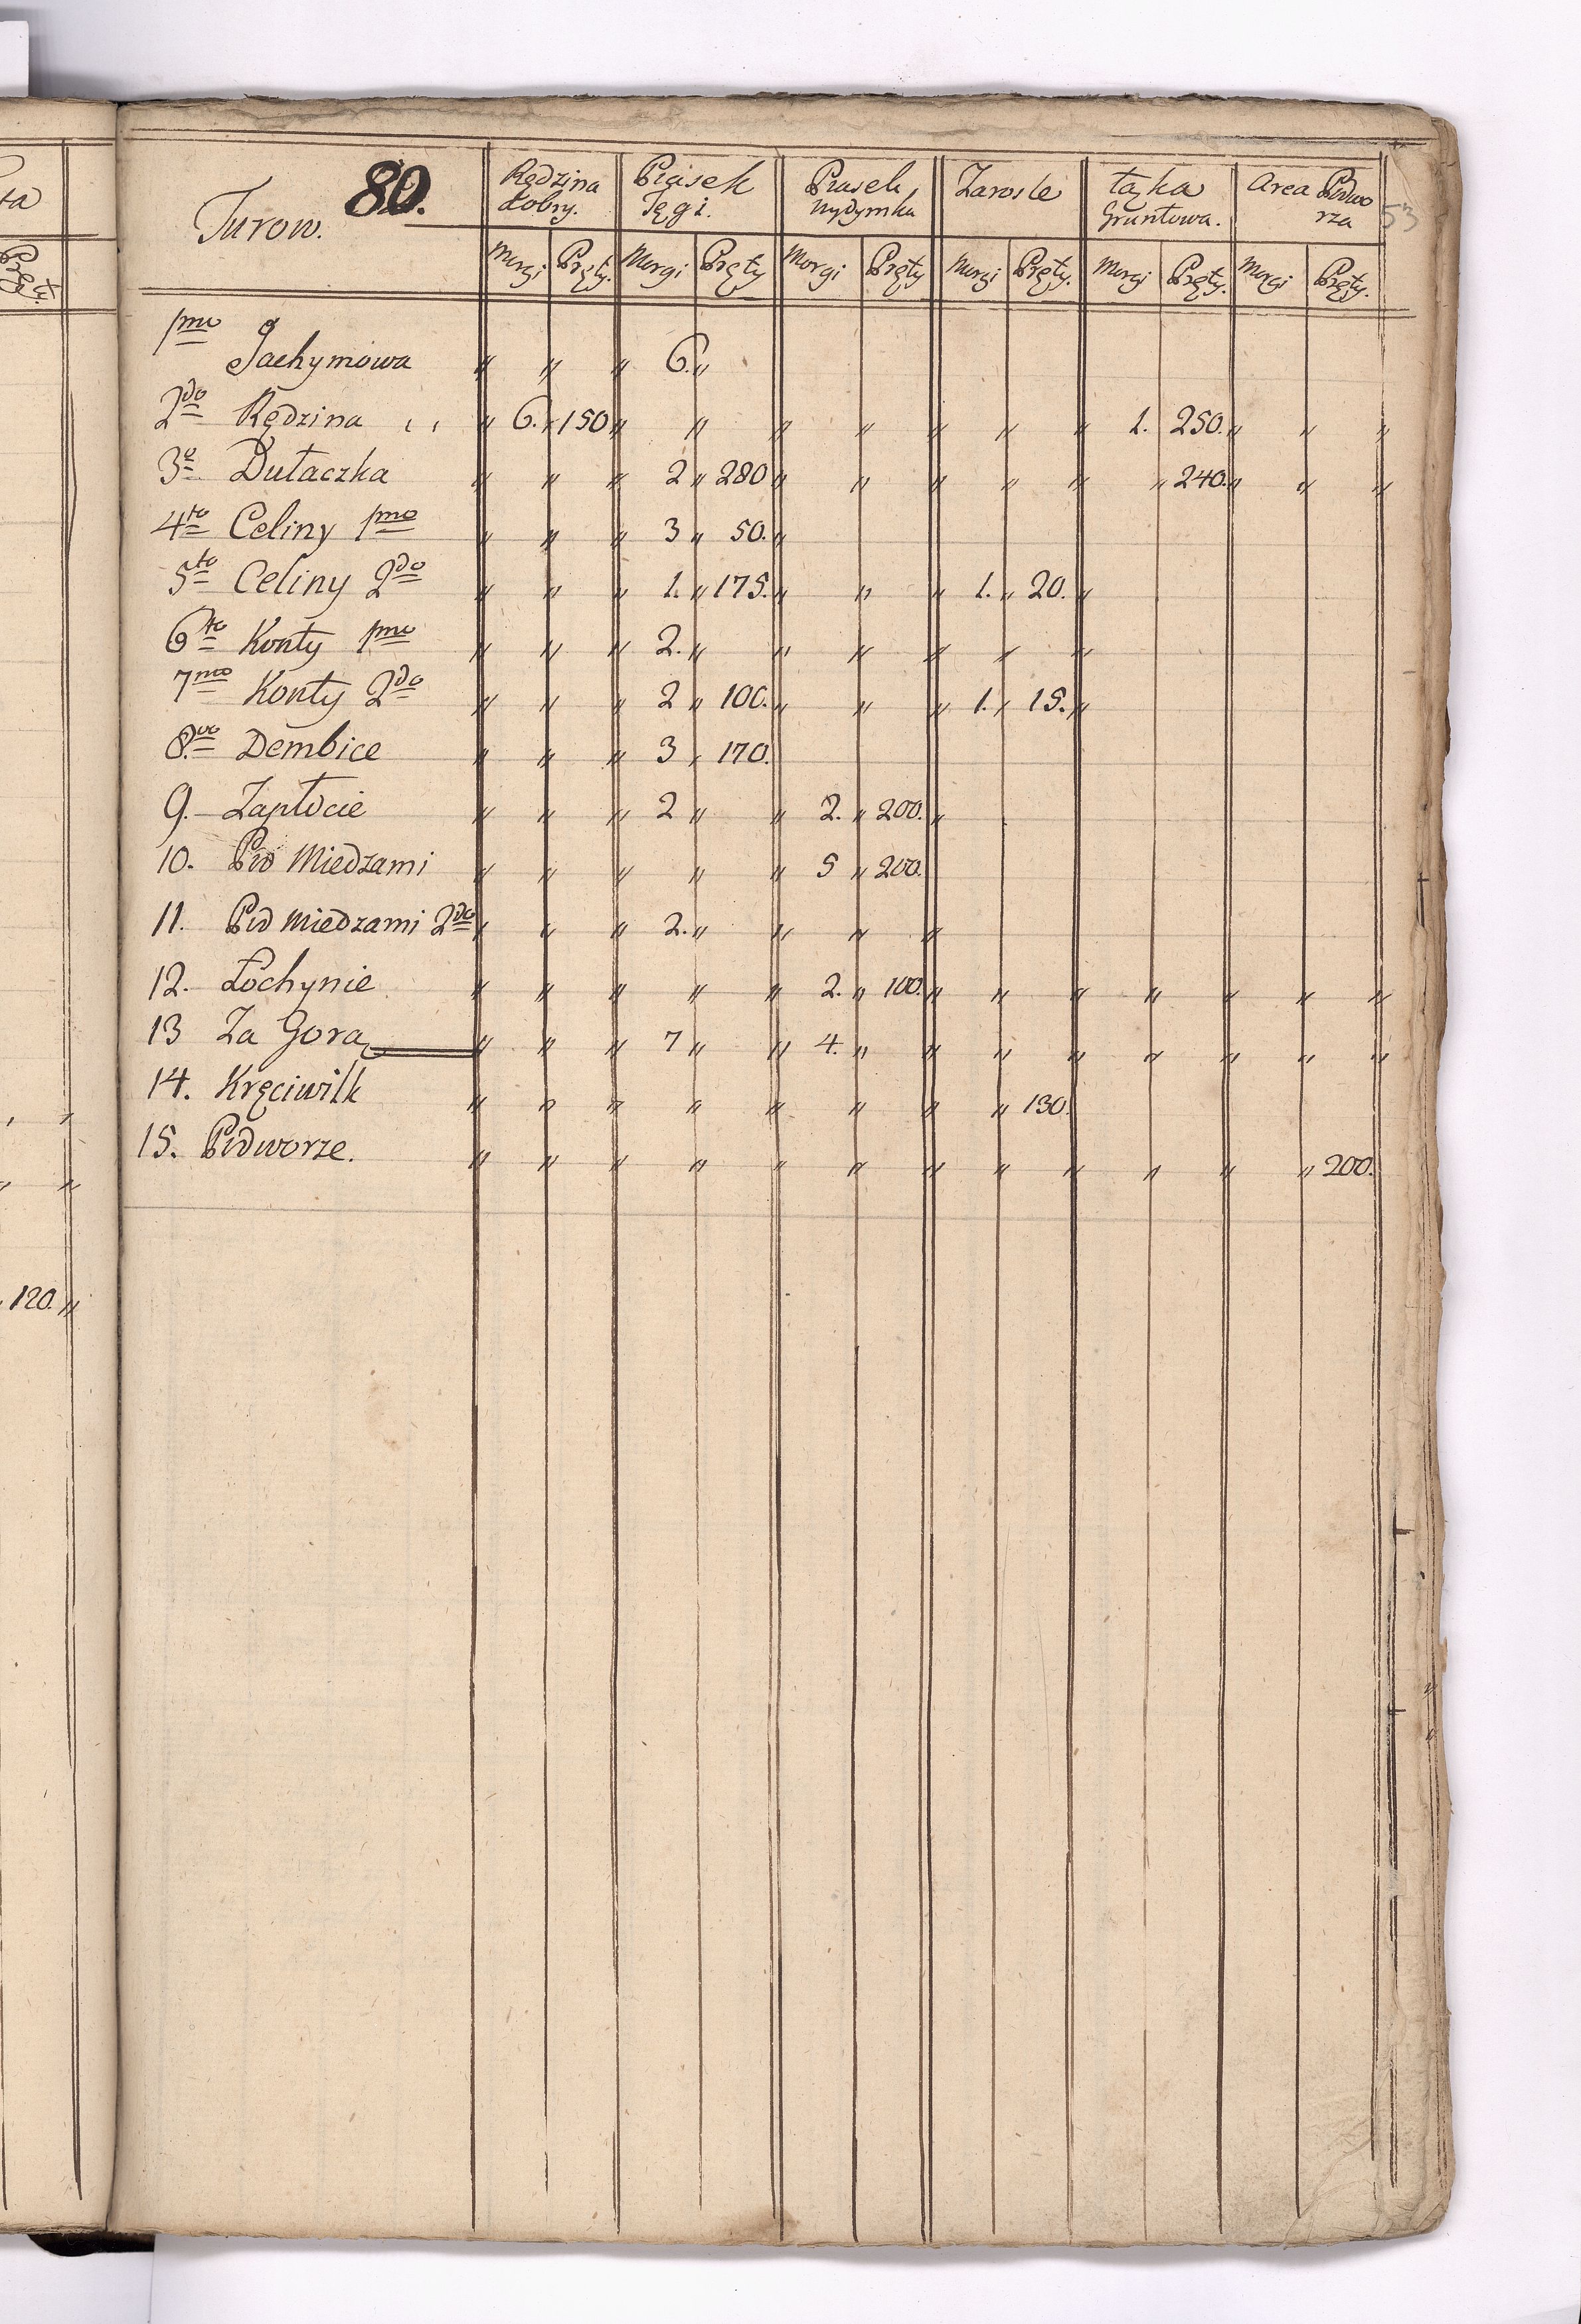 ta
Pręty.
120. "
Turow. 80.
Rędzina dobry. Piasek Tęgi. Piasek wydymka Zarosle Łąka Gruntowa. Area Podworza 53
Morgi Pręty. Morgi Pręty Morgi Pręty Morgi Pręty. Morgi Pręty. Morgi Pręty.
1mo Jachymowa " " " 6. "
2do Rędzina " 6. " 150 " " " " " " " 1. 250. " " "
3o Dułaczka " " " 2 " 280 " " " " " " 240. " " "
4to Celiny 1mo " " " 3 " 50. "
5to Celiny 2do " " " 1. " 175. " " " 1. " 20. "
6to Konty 1mo " " " 2. " " " " " "
7mo Konty 2do " " " 2 " 100. " " " 1. " 15. "
8vo Dembice " " " 3 " 170.
9. Zapłocie " " " 2 " " 2. " 200. "
10. Pod Miedzami " " " " " 5 " 200.
11. Pod Miedzami 2do " " " 2. " " " "
12. Łochynie " " " " " 2. " 100. " " " " " " "
13 Za Gorą " " " 7 " " 4. " " " " " " " "
14. Kręciwilk " " " " " " " " 130.
15. Podworze. " " " " " " " " " " " " 200.